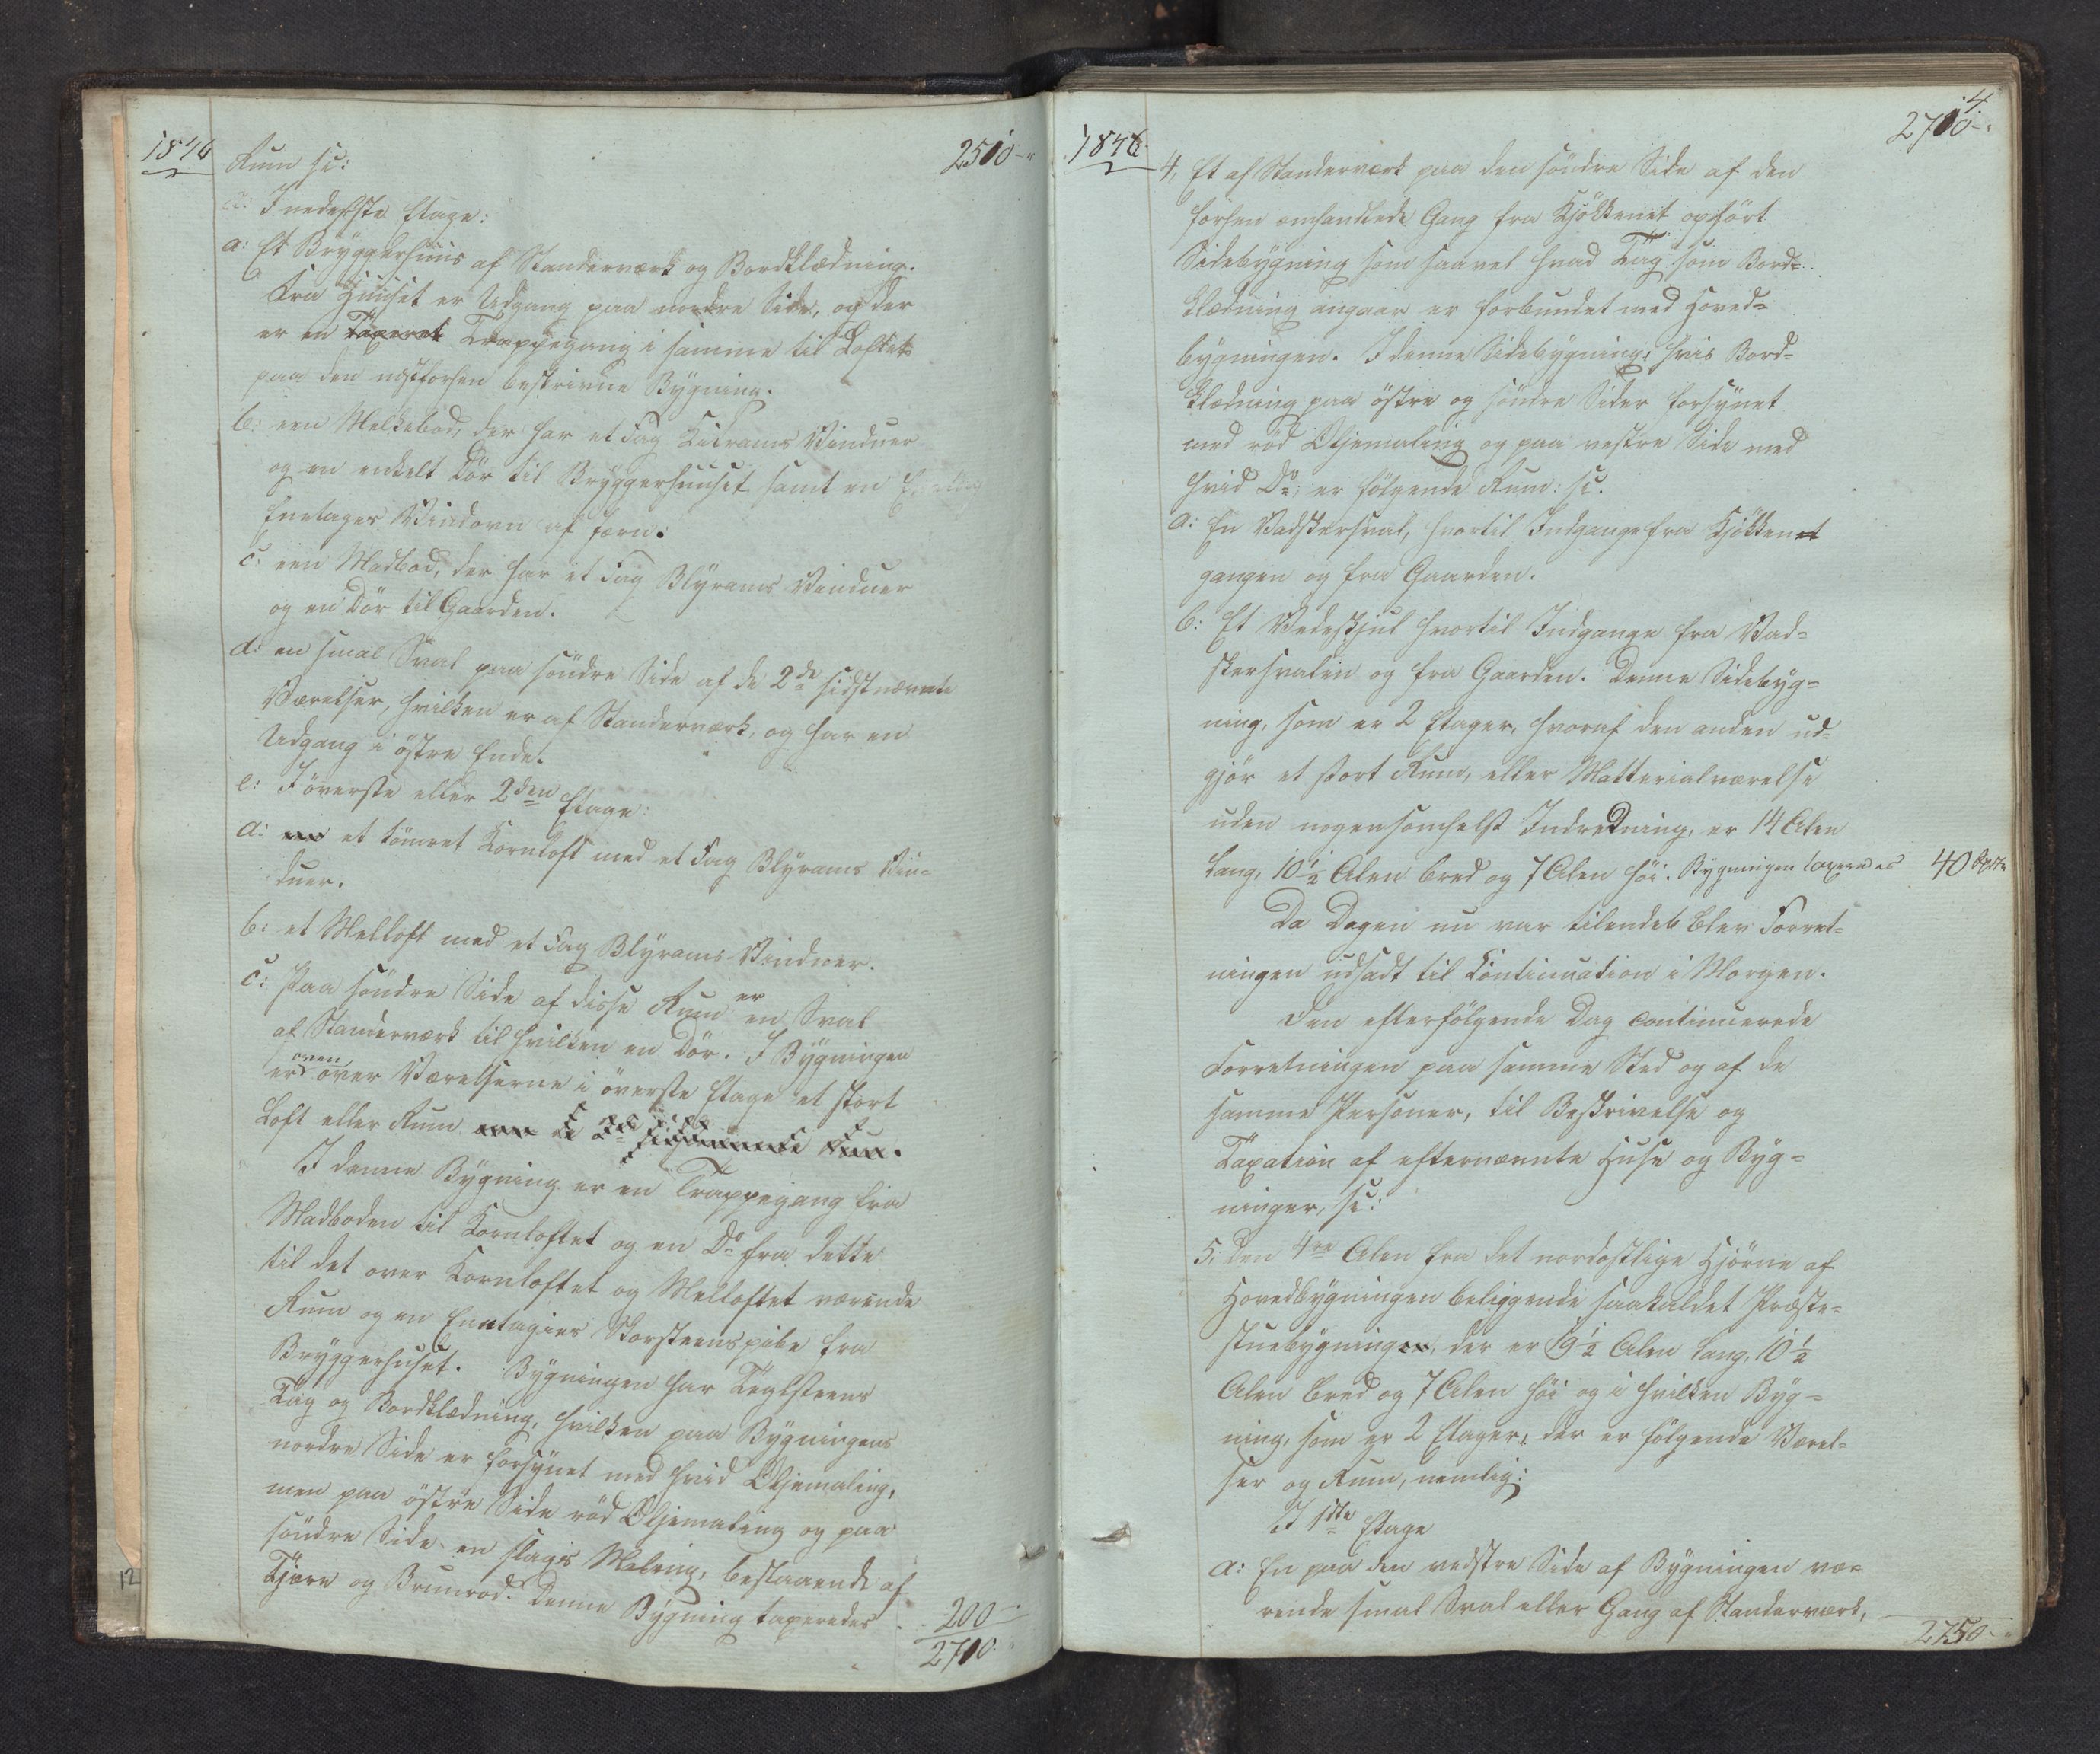 1846
2510-"
Rum sc:
α: I nederste Etage:
a: Et Bryggerhuus af Standerværk og Bordklædning.
Fra Huuset er Udgang paa nordre Side, og der
er en Trappegang i samme til Loftet
paa den næstforhen beskrivne Bygning.
b: een Melkebod, der har et Fag Kitrams Vinduer
og en enkelt Dör til Bryggerhuuset samt en
Eenetages Vindovn af Jern.
c: een Madbod, der har et Fag Blyrams Vinduer
og en Dör til Gaarden.
d: en smal Sval paa söndre Side af de 2de sidstnævnte
Værelser, hvilken er af Standerværk, og har en
Udgang i östre Ende.
e: I överste eller 2den Etage:
a: et tömret Kornloft med et Fag Blyrams Vin-
duer.
b: et Melloft med et Fag Blyrams Vinduer.
c: Paa söndre Side af disse Rum er en Sval
af Standerværk til hvilken en Dör. I Bygningen
er oven over Værelserne i överste Etage et stort
Loft eller Rum
I denne Bygning er en Trappegang fra
Madboden til Kornloftet og en Do fra dette
til det over Kornloftet og Melloftet værende
Rum og en Enetagies Skorsteenspibe fra
Bryggerhuset. Bygningen har Teglsteens
Tag og Bordklædning, hvilken paa Bygningens
nordre Side er forsynet med hvid Oljemaling,
men paa östre Side röd Oljemaling og paa
söndre Side en slags Maling, bestaaende af
Tjære og Brunröd. Denne Bygning taxeredes
200-
2710.
12
1846.
4.
2710-.
4, Et af Standerværk paa den söndre Side af den
forhen omhandlede Gang fra Kjökkenet opfört
Sidebygning som saavel hvad Tag som Bord-
klædning angaar er forbundet med Hoved-
bygningen. I denne Sidebygning, hvis Bord-
klædning paa östre og söndre Sider forsynet
med röd Oljemaling og paa vestre Side med
hvid Do, er fölgende Rum: sc.
a: En Vadskersval, hvortil Indgange fra Kjökken
gangen og fra Gaarden.
b: Et Vedeskjul hvortil Indgange fra Vad-
skersvalen og fra Gaarden. Denne Sidebyg-
ning, som er 2 Etager, hvoraf den anden ud-
gjör et stort Rum, eller Matterialværelse
uden nogensomhelst Indredning, er 14 Alen
lang, 10½ Alen bred og 7 Alen höi. Bygningen taxeredes 40
Da Dagen nu var tilendeb blev Forret-
ningen udsadt til Continuation i Morgen.
Den efterfölgende Dag continuerede
Forretningen paa samme Sted og af de
samme Personer, til Beskrivelse og
Taxation af efternævnte Huse og Byg-
ninger, sc:
5, Den 4re Alen fra det nordostlige Hjörne af
Hovedbygningen beliggende saakaldet Præste-
stuebygningen, der er 19½ Alen lang, 10½
Alen bred og 7 Alen höi og i hvilken Byg-
ning, som er 2 Etager, der er fölgende Værel-
ser og Rum, nemlig:
I 1ste Etage
a: En paa den vedstre Side af Bygningen væ-
rende smal Sval eller Gang af Standerværk,
2750-